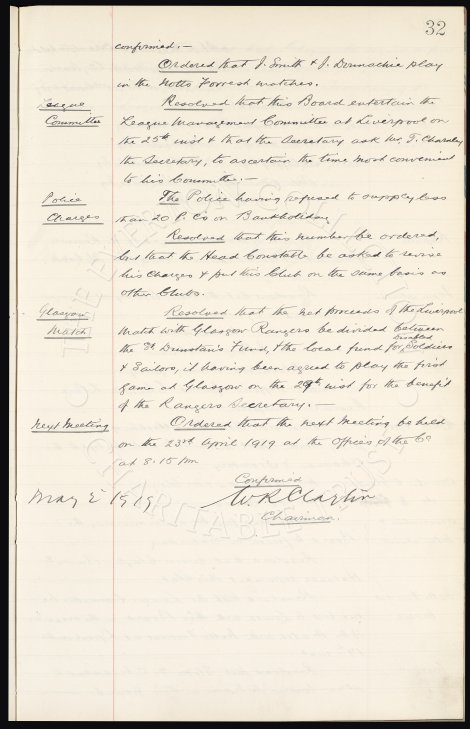 32
confirmed:-
Ordered that J. Smith & J. Donnachie play
in the Notts Forrest matches.
League Committee
Resolved that this Board entertain the
League Management Committee at Liverpool on
the 25th inst & that the Secretary ask Mr. T. Charnley
the Secretary, to ascertain the time most convenient
to his Committee.-
Police Charges
The Police having refused to supply less
than 20 P. Cs on Bankholiday
Resolved that this number be ordered,
but that the Head Constable be asked to revise
his charges & put this Club on the same basis as
other Clubs.
Glasgow Match
Resolved that the net proceeds of the Liverpool
match with Glasgow Rangers be divided between
the St Dunstan's Fund, & the local fund for Disabled Soldiers
& Sailors, it having been agreed to play the first
game at Glasgow on the 29th inst for the benefit
of the Rangers Secretary.-
Next Meeting
Ordered that the next Meeting be held
on the 23rd April 1919 at the Offices of the Co
at 8.15 pm
Confirmed
May 2 1919
W. R. Clayton
Chairman.